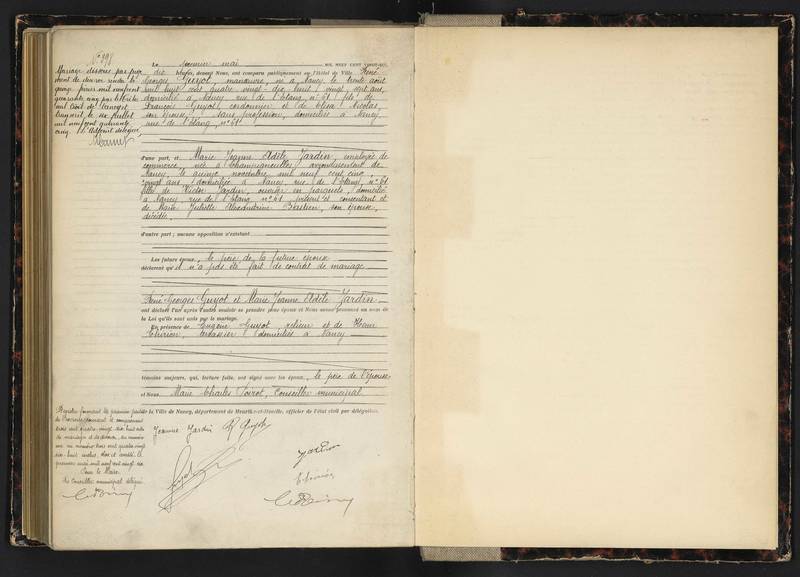 N° 398
Mariage dissous par juge
ment de divorce rendu le
quinze juin mil neuf cent
quarante cinq par le tribunal
civil de
le six juillet
mil neuf cent quarante
cinq. L'Adjoint délégué,
Le premier mai MIL NEUF CENT VINGT-SIX,
dix heures, devant Nous, ont comparu publiquement en l'Hôtel de Ville René
Georges Guyot, manœuvre, né à Nancy le trente août
mil huit cent quatre vingt dix huit, vingt sept ans,
domicilié à Nancy rue de l'Etang, n° 61 fils de
François Guyot, cordonnier et de Elisa Nicolas,
son épouse, sans profession, domiciliés à Nancy,
rue de l'Etang, n° 61
d'une part, et Marie Jeanne Adèle Jardin, employée de
commerce, née à Champigneulles arrondissement de
Nancy, le quinze novembre mil neuf cent cinq,
vingt ans, domiciliée à Nancy rue de l'Etang, n° 61
fille de Victor Jardin, ouvrier en parquets, domicilié
à Nancy, rue de l'Etang n° 61, présent et consentant et
de Marie Juliette Alexandrine Bastien, son épouse,
décédée.
d'autre part ; aucune opposition n'existant
Les futurs époux, le père de la future épouse
déclarent qu'il n'a pas été fait de contrat de mariage
René Georges Guyot et Marie Jeanne Adèle Jardin
ont déclaré l'un après l'autre vouloir se prendre pour époux et Nous avons prononcé au nom de
la Loi qu'ils sont unis par le mariage.
En présence de Eugène Guyot, et de Henri
Thirion, domiciliés à Nancy
témoins majeurs, qui, lecture faite, ont signé avec les époux, le père de l'épouse
et Nous, Marie Charles Poirot, Conseiller municipal
de la Ville de Nancy, département de Meurthe-et-Moselle, officier de l'état civil par délégation.
Registre
trois cent quatre-vingt dix huit actes
de mariages et de divorces, du numéro
un au numéro trois cent quatre-vingt
dix-huit inclus, clos et arrêté le
premier mai mil neuf cent vingt six.
Pour le Maire,
Le Conseiller municipal délégué,
Jeanne Jardin R Guyot
Jardin